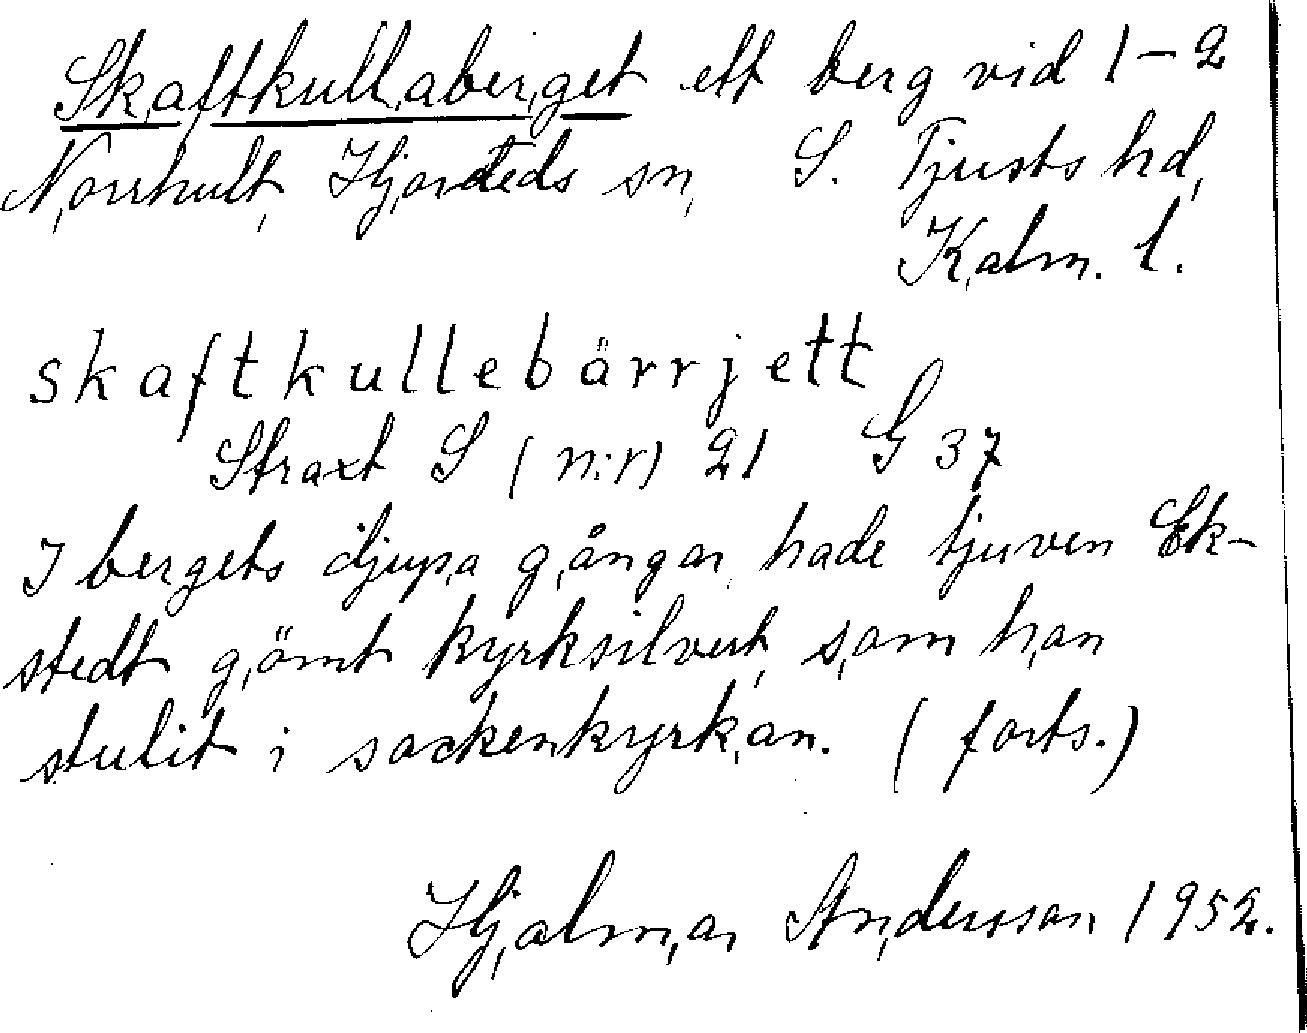 Skaftkullaberget ett berg vid 1-2
Norrhult, Hjorteds sn, S. Tjusts hd,
Kalm. l.
skaftkullebärrjett
Straxt S (n:r) 21 G 37
I bergets djupa gångar hade tjuven Ek-
stedt gömt kyrksilvert, som han
stulit i sockenkyrkan. (forts.)
Hjalmar Andersson 1952.